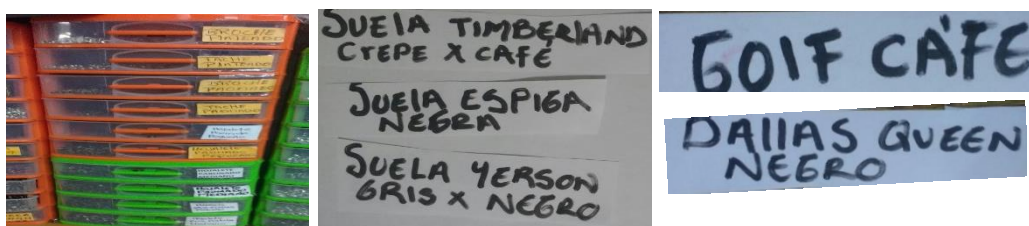 BROCHE
PLATEADO
TACHE
PLATEADO
BROCHE
PAVONADO
TACHE
PAVONADO
SUELA TIMBERLAND
CREPE X CAFÉ
SUELA ESPIGA
NEGRA
SUELA YERSON
GRIS X NEGRO
GOLF CAFE
DALLAS QUEEN
NEGRO